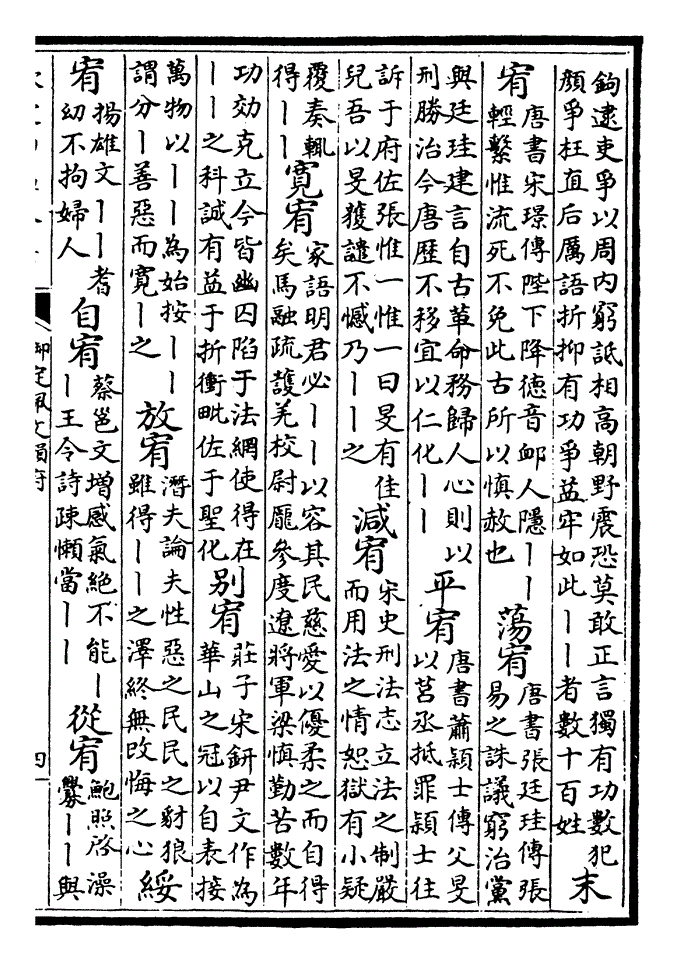 鉤逮吏爭以周内窮詆相高朝野震恐莫敢正言獨有功數犯
顏爭枉直后厲語折抑有功爭益牢如此丨丨者數十百姓
末
宥
唐書宋璟傳陛下降德音䘏人隱丨丨
輕繫惟流死不免此古所以慎赦也
蕩宥
唐書張廷珪傳張
易之誅議窮治黨
興廷珪建言自古革命務歸人心則以
刑勝治今唐歷不移宜以仁化丨丨
平宥
唐書蕭穎士傳父旻
以莒丞抵罪穎士往
訴于府佐張惟一惟一曰旻有佳
兒吾以旻獲譴不憾乃丨丨之
減宥
宋史刑法志立法之制嚴
而用法之情恕獄有小疑
覆奏輒
得丨丨
寛宥
家語明君必丨丨以容其民慈愛以優柔之而自得
矣馬融疏護羌校尉龎參度遼將軍梁慎勤苦數年
功効克立今皆幽囚陷于法網使得在
丨丨之科誠有益于折衝毗佐于聖化
別宥
莊子宋鈃尹文作為
華山之冠以自表接
萬物以丨丨為始按丨丨
謂分丨善惡而寛丨之
放宥
潛夫論夫性惡之民民之豺狼
雖得丨丨之澤終無改悔之心
綏
宥
揚雄文丨丨耆
幼不拘婦人
自宥
蔡邕文增感氣絶不能丨
丨王令詩疎懶當丨丨
從宥
鮑照啓澡
爨丨丨與
御定佩文韻府